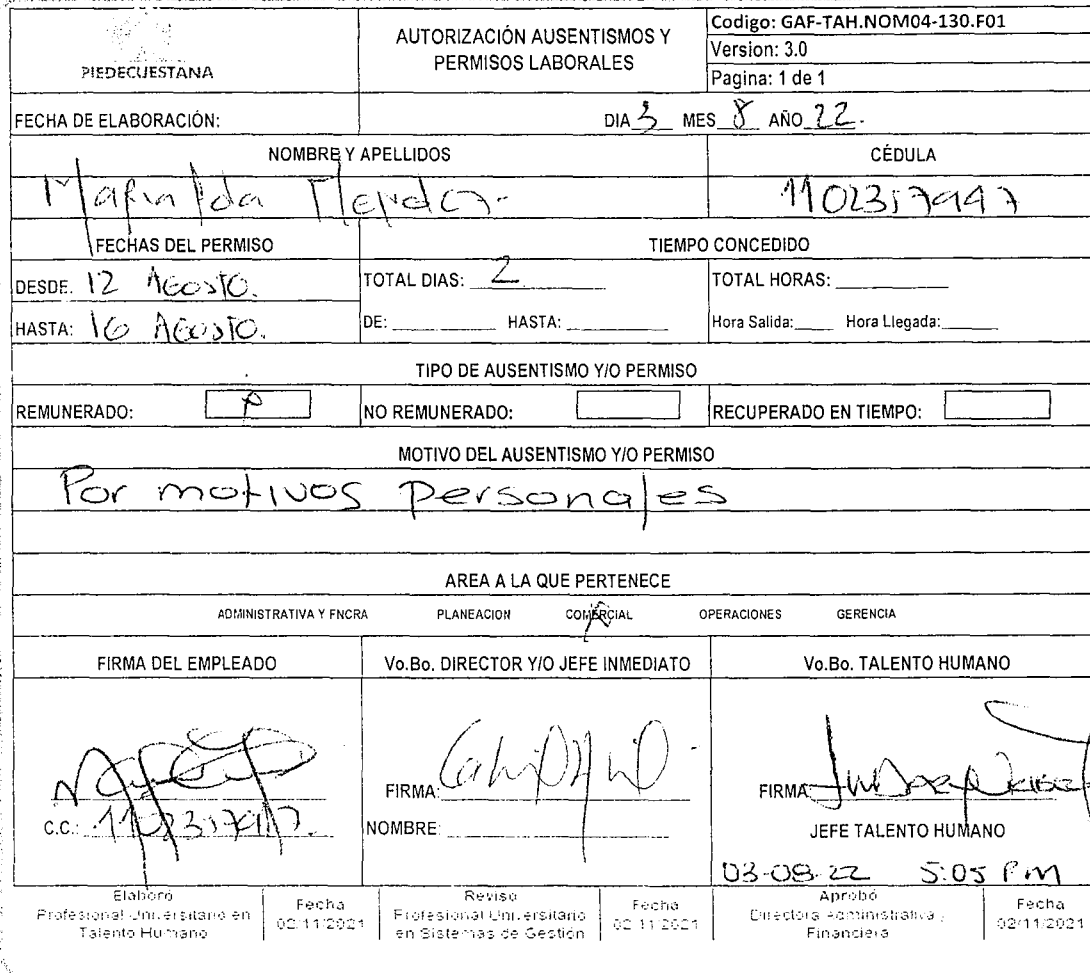 PIEDECUESTANA
AUTORIZACIÓN AUSENTISMOS Y
PERMISOS LABORALES
Codigo: GAF-TAH.NOM04-130.F01
Version: 3.0
Pagina: 1 de 1
FECHA DE ELABORACIÓN: DIA 3 MES 8 AÑO 22.
NOMBRE Y APELLIDOS CÉDULA
Mafalda 1102357947
FECHAS DEL PERMISO TIEMPO CONCEDIDO
DESDE: 12 Agosto. TOTAL DIAS: 2 TOTAL HORAS:
HASTA: 16 Agosto. DE: HASTA: Hora Salida: Hora Llegada:
TIPO DE AUSENTISMO Y/O PERMISO
REMUNERADO: NO REMUNERADO: RECUPERADO EN TIEMPO:
MOTIVO DEL AUSENTISMO Y/O PERMISO
Por motivos personales
AREA A LA QUE PERTENECE
ADMINISTRATIVA Y FNCRA PLANEACION COMERCIAL OPERACIONES GERENCIA
FIRMA DEL EMPLEADO Vo.Bo. DIRECTOR Y/O JEFE INMEDIATO Vo.Bo. TALENTO HUMANO
FIRMA: FIRMA
C.C.: NOMBRE: JEFE TALENTO HUMANO
03-08-22 5:05 Pm
Elaboró
Profesional Universitario en
Talento Humano
Fecha
02/11/2021
Reviso
Profesional Universitario
en Sistemas de Gestión
Fecha
02/11/2021
Aprobó
Directora Administrativa y
Financiera
Fecha
02/11/2021